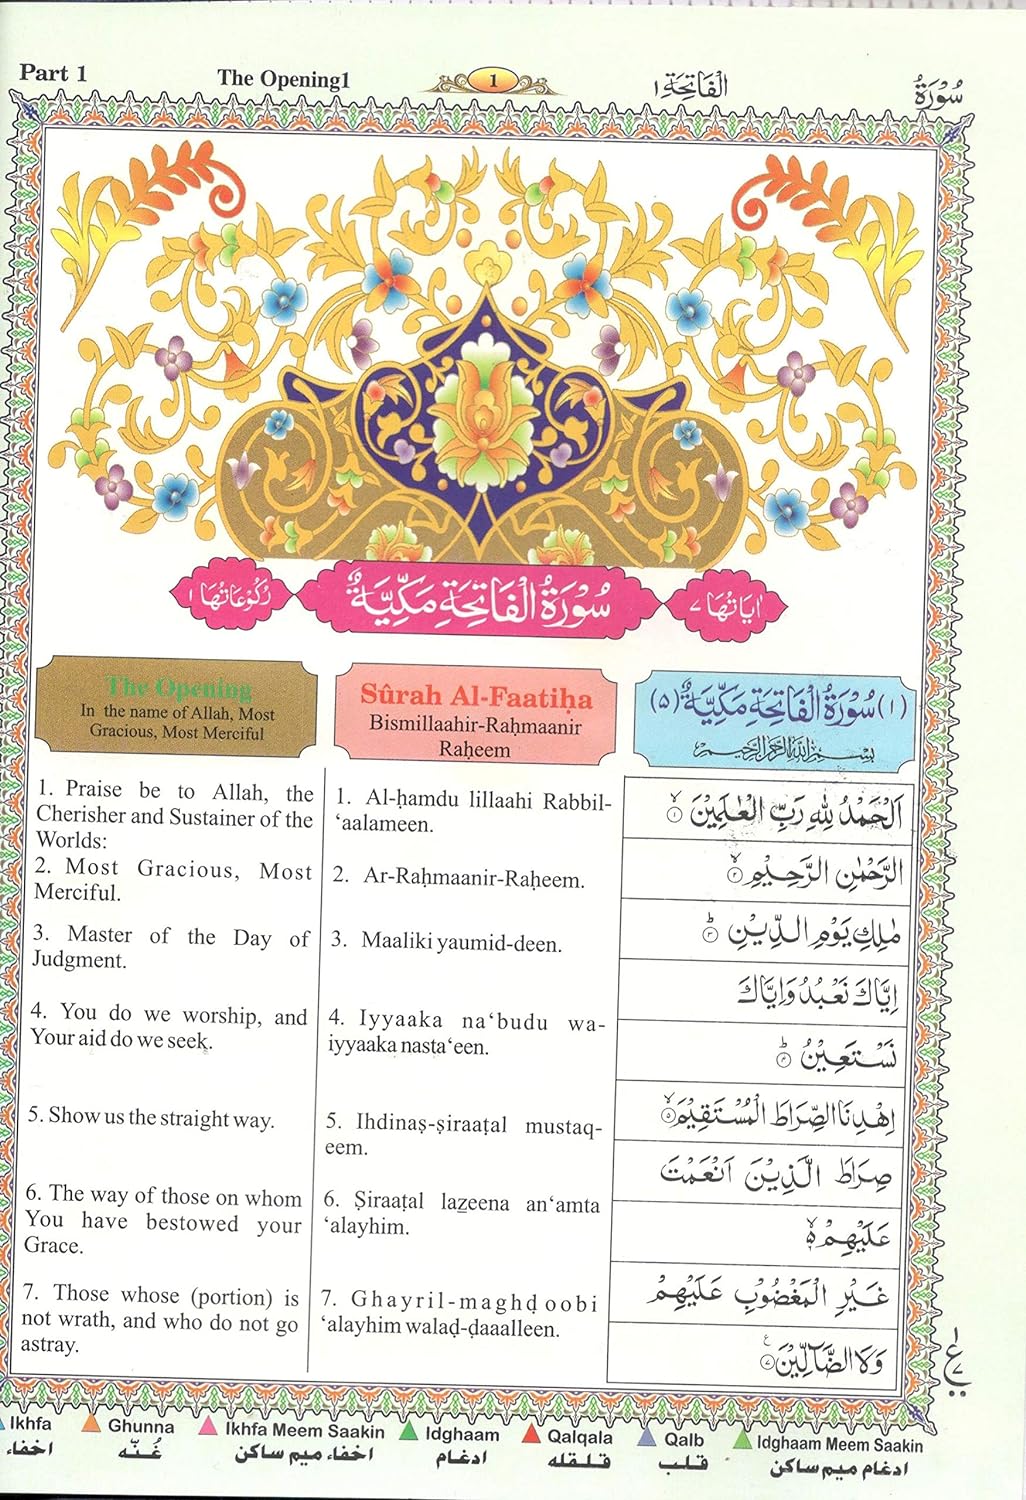 Part 1
The Opening1
1
الْفَاتِحَة ١
سُوْرَةُ
رُكُوْعَاتُهَا ١
سُوْرَةُ الْفَاتِحَةِ مَكِّيَّةٌ
اٰيَاتُهَا ٧
The Opening
In the name of Allah, Most
Gracious, Most Merciful
Sûrah Al-Faatiḥa
Bismillaahir-Raḥmaanir
Raḥeem
(١) سُوْرَةُ الْفَاتِحَةِ مَكِّيَّةٌ (٥)
بِسْمِ اللّٰهِ الرَّحْمٰنِ الرَّحِيْمِ
1. Praise be to Allah, the
Cherisher and Sustainer of the
Worlds:
2. Most Gracious, Most
Merciful.
3. Master of the Day of
Judgment.
4. You do we worship, and
Your aid do we seek.
5. Show us the straight way.
6. The way of those on whom
You have bestowed your
Grace.
7. Those whose (portion) is
not wrath, and who do not go
astray.
1. Al-ḥamdu lillaahi Rabbil-
‘aalameen.
2. Ar-Raḥmaanir-Raḥeem.
3. Maaliki yaumid-deen.
4. Iyyaaka na‘budu wa-
iyyaaka nasta‘een.
5. Ihdinaṣ-ṣiraaṭal mustaq-
eem.
6. Ṣiraaṭal lazeena an‘amta
‘alayhim.
7. Ghayril-maghḍoobi
‘alayhim walaḍ-ḍaaalleen.
اَلْحَمْدُ لِلّٰهِ رَبِّ الْعٰلَمِيْنَ ۙ ١
الرَّحْمٰنِ الرَّحِيْمِ ۙ ٢
مٰلِكِ يَوْمِ الدِّيْنِ ؕ ٣
اِيَّاكَ نَعْبُدُ وَاِيَّاكَ
نَسْتَعِيْنُ ؕ ٤
اِهْدِنَا الصِّرَاطَ الْمُسْتَقِيْمَ ۙ ٥
صِرَاطَ الَّذِيْنَ اَنْعَمْتَ
عَلَيْهِمْ ۙ ٥
غَيْرِ الْمَغْضُوْبِ عَلَيْهِمْ
وَلَا الضَّآلِّيْنَ ع ٧
ع ٧
Ikhfa
Ghunna
Ikhfa Meem Saakin
Idghaam
Qalqala
Qalb
Idghaam Meem Saakin
اخفاء
غُنّه
اخفاء میم ساکن
ادغام
قلقله
قلب
ادغام میم ساکن